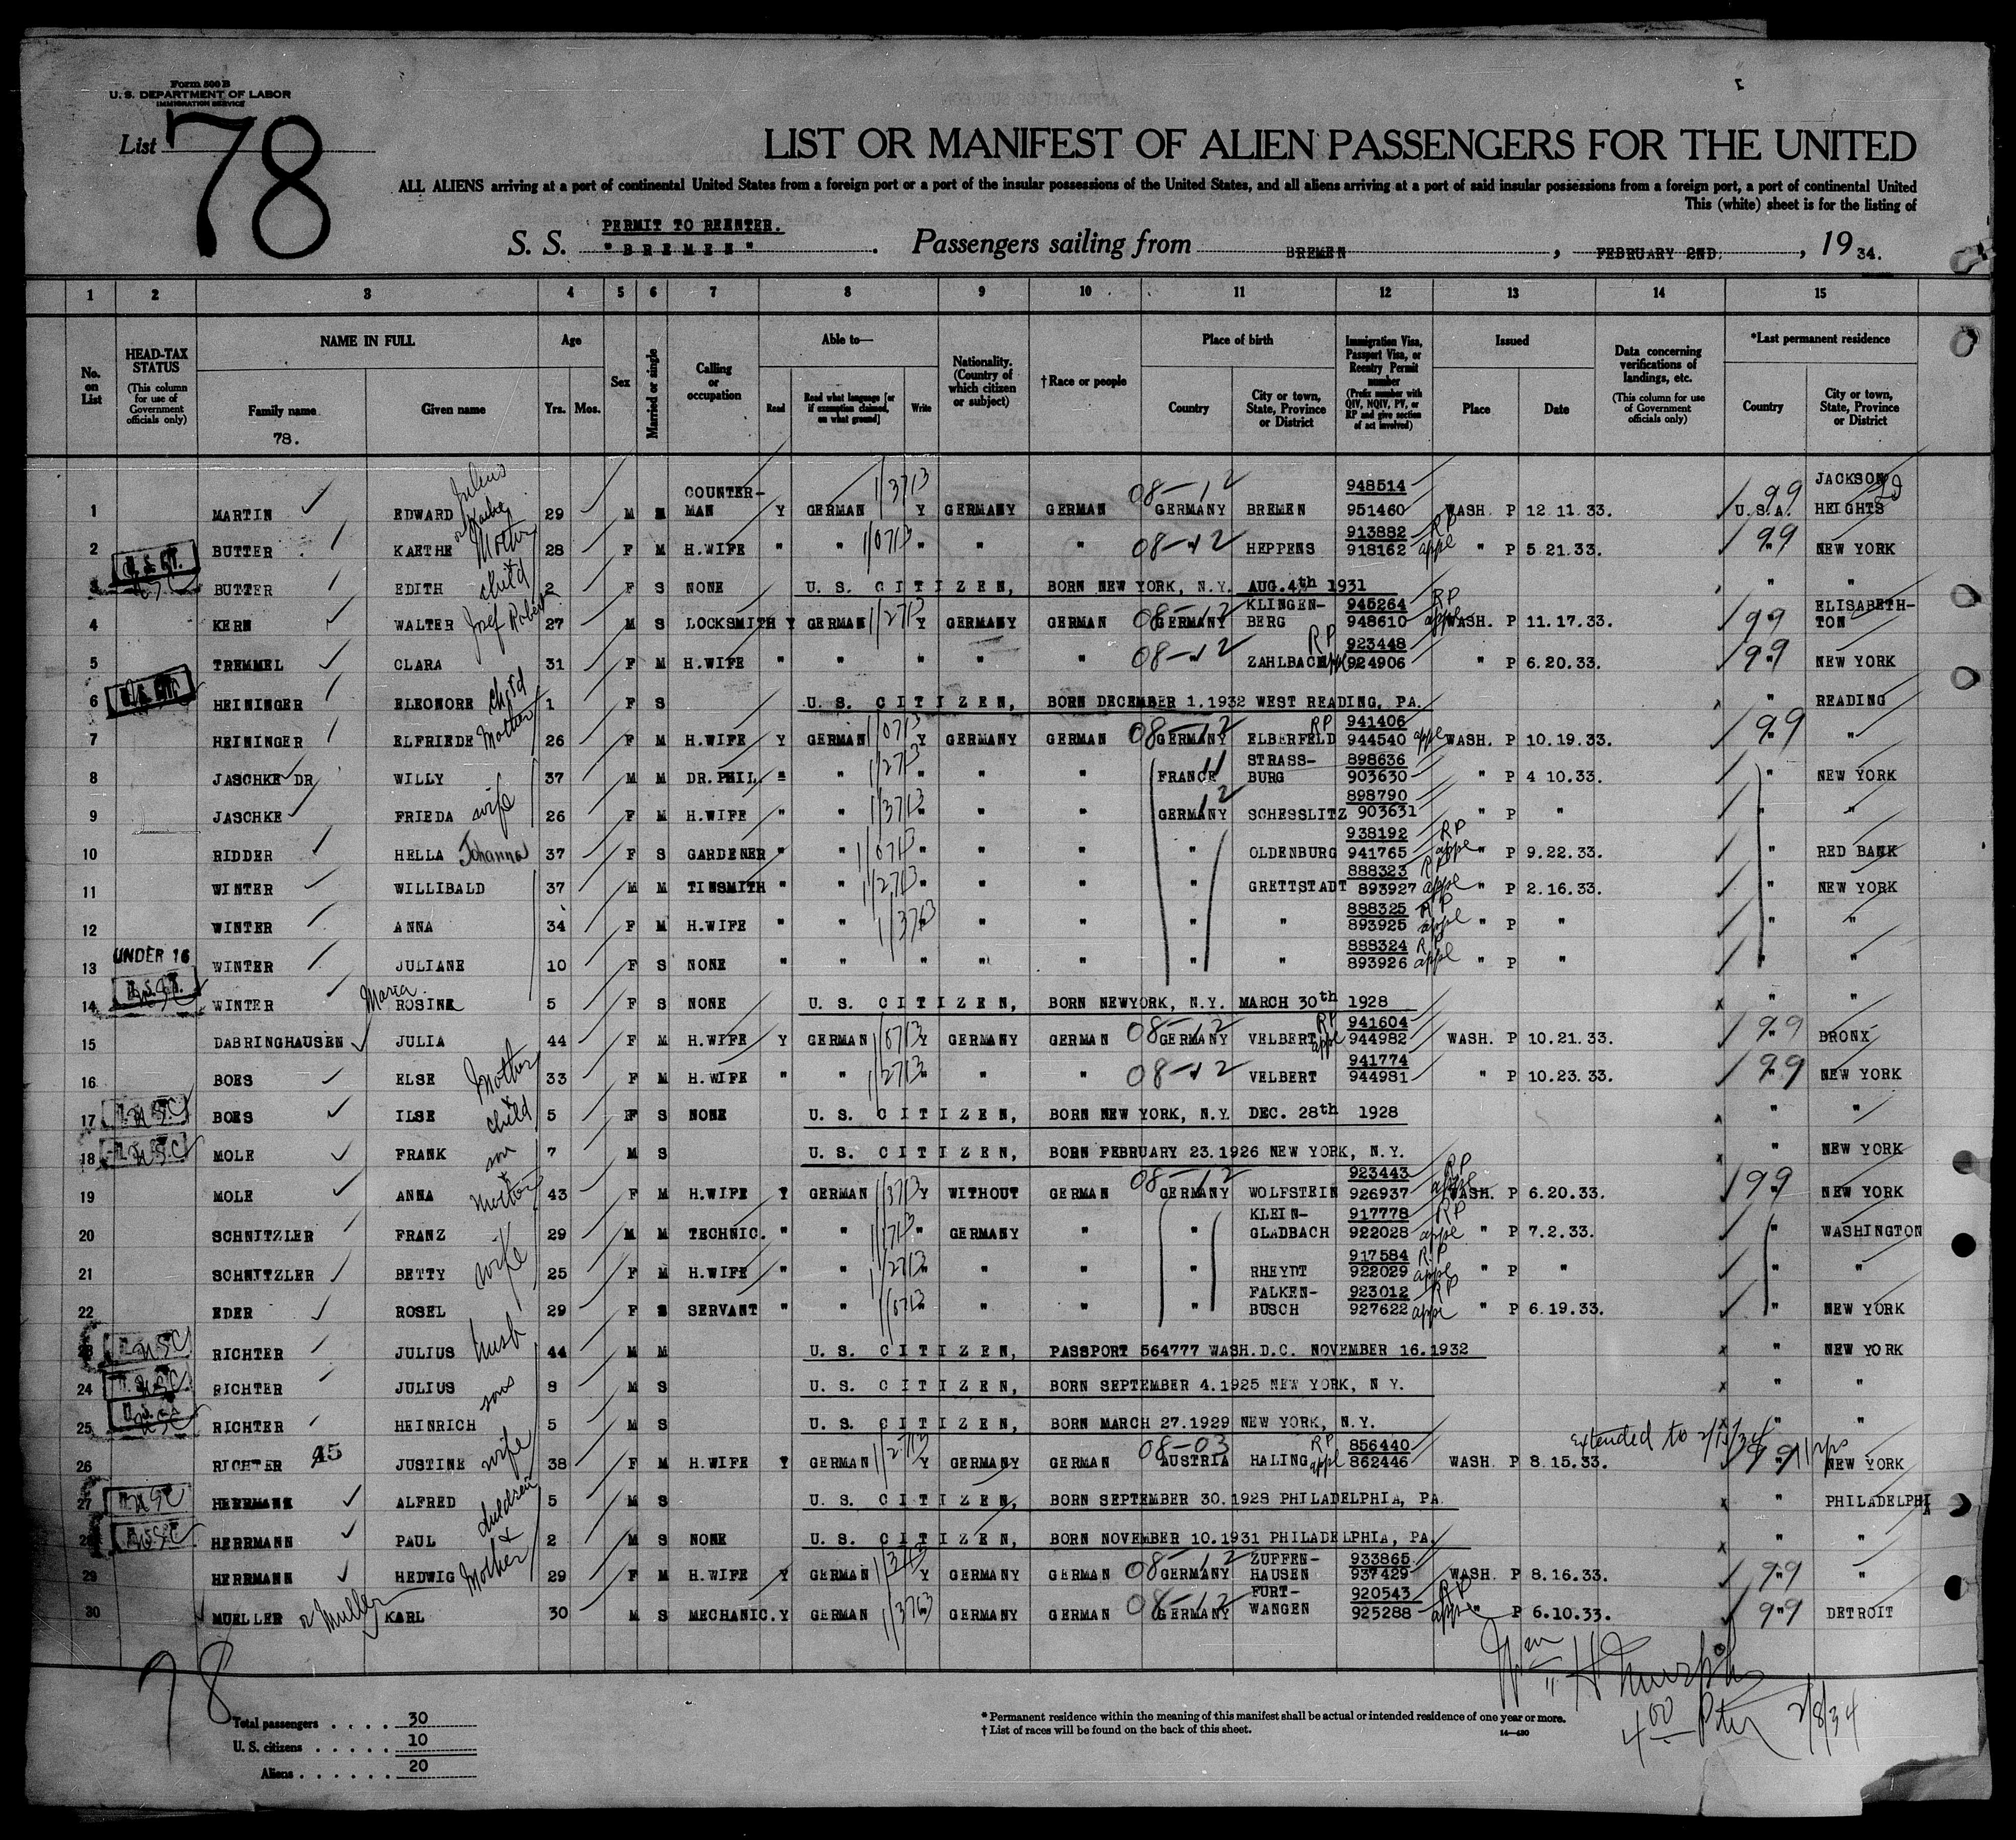 Form 500 B
U. S. DEPARTMENT OF LABOR
IMMIGRATION SERVICE
List 78
LIST OR MANIFEST OF ALIEN PASSENGERS FOR THE UNITED
ALL ALIENS arriving at a port of continental United States from a foreign port or a port of the insular possessions of the United States, and all aliens arriving at a port of said insular possessions from a foreign port, a port of continental United
This (white) sheet is for the listing of
PERMIT TO REENTER.
S. S. "BREMEN". Passengers sailing from BREMEN, FEBRUARY 2ND., 1934.
1 2 3 4 5 6 7 8 9 10 11 12 13 14 15
No. on List
HEAD-TAX STATUS (This column for use of Government officials only)
NAME IN FULL
Family name Given name
78.
Age
Yrs. Mos.
Sex
Married or single
Calling or occupation
Able to—
Read
Read what language [or if exemption claimed, on what ground]
Write
Nationality. (Country of which citizen or subject)
†Race or people
Place of birth
Country
City or town, State, Province or District
Immigration Visa, Passport Visa, or Reentry Permit number (Prefix number with QIV, NQIV, PV, or RP and give section of act involved)
Issued
Place Date
Data concerning verifications of landings, etc. (This column for use of Government officials only)
*Last permanent residence
Country
City or town, State, Province or District
1 MARTIN EDWARD Julius 29 M S COUNTER-MAN Y GERMAN Y GERMANY GERMAN 08-12 GERMANY BREMEN 948514 951460 WASH. P 12.11.33. 99 U.S.A. JACKSON HEIGHTS
2 BUTTER KAETHE Mother 28 F M H.WIFE " " " " " 08-12 " HEPPENS 913882 918162 RP appl " P 5.21.33. 99 " NEW YORK
3 BUTTER EDITH child 2 F S NONE U. S. CITIZEN, BORN NEW YORK, N.Y. AUG.4th 1931 " "
4 KERN WALTER Josef Robert 27 M S LOCKSMITH Y GERMAN Y GERMANY GERMAN 08-12 GERMANY KLINGEN-BERG 945264 948610 RP appl WASH. P 11.17.33. 99 ELISABETH-TON
5 TREMMEL CLARA 31 F M H.WIFE " " " " " 08-12 " ZAHLBACH RP appl 923448 924906 " P 6.20.33. 99 " NEW YORK
6 HEININGER ELEONORE child 1 F S U. S. CITIZEN, BORN DECEMBER 1.1932 WEST READING, PA. " READING
7 HEININGER ELFRIEDE Mother 26 F M H.WIFE Y GERMAN Y GERMANY GERMAN 08-12 GERMANY ELBERFELD RP 941406 944540 appl WASH. P 10.19.33. 99 " "
8 JASCHKE DR WILLY 37 M M DR.PHIL. " " " " " FRANCE 11 STRASS-BURG 898636 903630 " P 4 10.33. " NEW YORK
9 JASCHKE FRIEDA wife 26 F M H.WIFE " " " " " GERMANY 12 SCHESSLITZ 898790 903631 " P " " "
10 RIDDER HELLA Johanna 37 F S GARDENER " " " " " " OLDENBURG 938192 941765 RP appl " P 9.22.33. " RED BANK
11 WINTER WILLIBALD 37 M M TINSMITH " " " " " " GRETTSTADT 888323 893927 RP appl " P 2.16.33. " NEW YORK
12 WINTER ANNA 34 F M H.WIFE " " " " " " " 888325 893925 RP appl " P " " "
13 UNDER 16 WINTER JULIANE 10 F S NONE " " " " " " " 888324 893926 RP appl " P " " "
14 WINTER Maria ROSINE 5 F S NONE U. S. CITIZEN, BORN NEWYORK, N.Y. MARCH 30th 1928 " "
15 DABRINGHAUSEN JULIA 44 F M H.WIFE Y GERMAN Y GERMANY GERMAN 08-12 GERMANY VELBERT RP appl 941604 944982 WASH. P 10.21.33. 99 " BRONX
16 BOES ELSE Mother 33 F M H.WIFE " " " " " 08-12 " VELBERT 941774 944981 " P 10.23.33. 99 " NEW YORK
17 USC BOES ILSE child 5 F S NONE U. S. CITIZEN, BORN NEW YORK, N.Y. DEC. 28th 1928 " "
18 USC MOLE FRANK son 7 M S U. S. CITIZEN, BORN FEBRUARY 23.1926 NEW YORK, N.Y. " NEW YORK
19 MOLE ANNA Mother 43 F M H.WIFE Y GERMAN Y WITHOUT GERMAN 08-12 GERMANY WOLFSTEIN 923443 926937 RP appl WASH. P 6.20.33. 99 " NEW YORK
20 SCHNITZLER FRANZ 29 M M TECHNIC. " " " GERMANY " " KLEIN-GLADBACH 917778 922028 RP appl " P 7.2.33. " WASHINGTON
21 SCHNITZLER BETTY wife 25 F M H.WIFE " " " " " " RHEYDT 917584 922029 RP appl " P " " "
22 EDER ROSEL 29 F S SERVANT " " " " " " FALKEN-BUSCH 923012 927622 RP appl " P 6.19.33. " NEW YORK
23 USC RICHTER JULIUS husb 44 M M U. S. CITIZEN, PASSPORT 564777 WASH.D.C. NOVEMBER 16.1932 " NEW YORK
24 USC RICHTER JULIUS sons 8 M S U. S. CITIZEN, BORN SEPTEMBER 4.1925 NEW YORK, N Y. " "
25 USC RICHTER HEINRICH 5 M S U. S. CITIZEN, BORN MARCH 27.1929 NEW YORK, N.Y. " "
26 RICHTER 45 JUSTINE wife 38 F M H.WIFE Y GERMAN Y GERMANY GERMAN 08-03 AUSTRIA HALING RP appl 856440 862446 WASH. P 8.15.33. Extended to 2/15/34 99 " NEW YORK
27 USC HERRMANN ALFRED children 5 M S U. S. CITIZEN, BORN SEPTEMBER 30.1928 PHILADELPHIA, PA " PHILADELPHIA
28 USC HERRMANN PAUL & 2 M S NONE U. S. CITIZEN, BORN NOVEMBER 10.1931 PHILADELPHIA, PA. " "
29 HERRMANN HEDWIG Mother 29 F M H.WIFE Y GERMAN Y GERMANY GERMAN 08-12 GERMANY ZUFFEN-HAUSEN 933865 937429 WASH. P 8.16.33. 99 " "
30 MUELLER or Muller KARL 30 M S MECHANIC. Y GERMAN Y GERMANY GERMAN 08-12 GERMANY FURT-WANGEN 920543 925288 RP appl " P 6.10.33. 99 " DETROIT
78
Wm H Murphy
400 2/8/34
Total passengers . . . . 30
U. S. citizens . . . . . 10
Aliens . . . . . . 20
* Permanent residence within the meaning of this manifest shall be actual or intended residence of one year or more.
† List of races will be found on the back of this sheet.
14—430